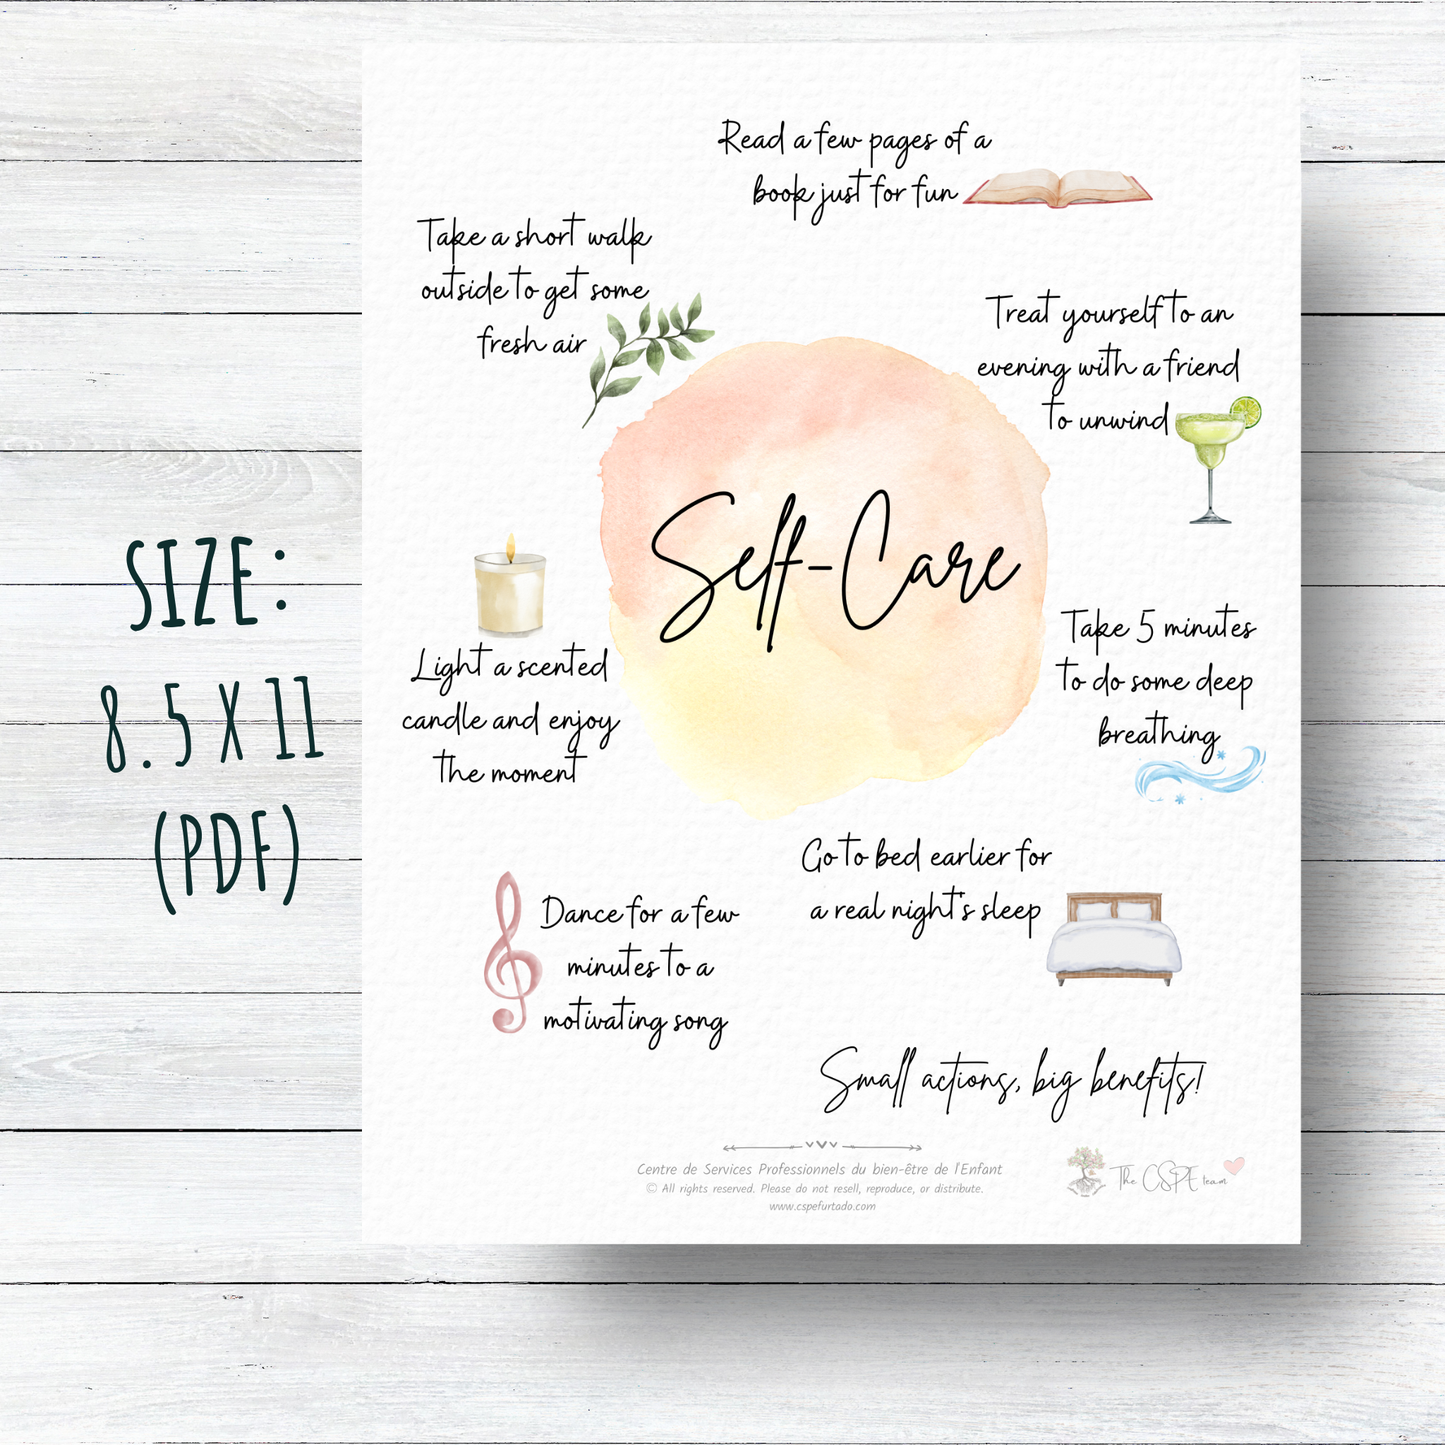 SIZE:
8.5 X 11
(PDF)
Read a few pages of a
book just for fun
Take a short walk
outside to get some
fresh air
Treat yourself to an
evening with a friend
to unwind
Self-Care
Light a scented
candle and enjoy
the moment
Take 5 minutes
to do some deep
breathing
Go to bed earlier for
a real night's sleep
Dance for a few
minutes to a
motivating song
Small actions, big benefits!
Centre de Services Professionnels du bien-être de l'Enfant
© All rights reserved. Please do not resell, reproduce, or distribute.
www.cspefurtado.com
The CSPE team